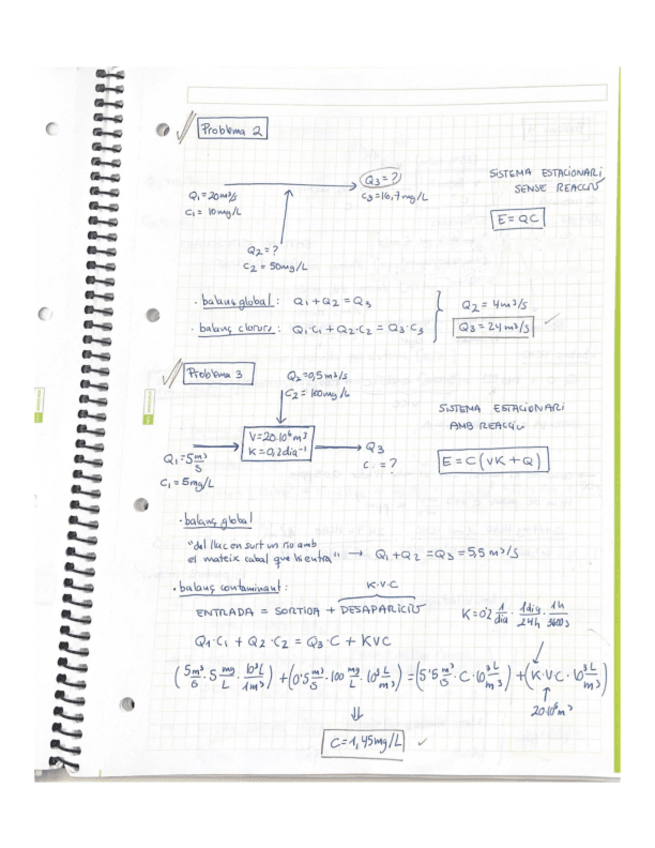 Problema 2
Q3 = ?
Q1 = 20 m³/s
C1 = 10 mg/L
C3 = 16,7 mg/L
SISTEMA ESTACIONARI
SENSE REACCIÓ
E = QC
Q2 = ?
C2 = 50 mg/L
· balanç global: Q1 + Q2 = Q3
· balanç clorurs: Q1·C1 + Q2·C2 = Q3·C3
Q2 = 4 m³/s
Q3 = 24 m³/s ✓
Problema 3
Q2 = 0,5 m³/s
C2 = 100 mg/L
SISTEMA ESTACIONARI
AMB REACCIÓ
V = 20·10⁶ m³
K = 0,2 dia⁻¹
Q3
C = ?
Q1 = 5 m³/s
C1 = 5 mg/L
E = C (VK + Q)
· balanç global
"del llac en surt un riu amb
el mateix cabal que hi entra" → Q1 + Q2 = Q3 = 5,5 m³/s
· balanç contaminant:
K·V·C
ENTRADA = SORTIDA + DESAPARICIÓ
K = 0'2 1/dia · 1dia/24h · 1h/3600s
Q1·C1 + Q2·C2 = Q3·C + KVC
(5 m³/s · 5 mg/L · 10³L/1m³) + (0'5 m³/s · 100 mg/L · 10³ L/m³) = (5'5 m³/s · C · 10³ L/m³) + (K·V·C · 10³ L/m³)
20·10⁶ m³
⇓
C = 1,45 mg/L ✓